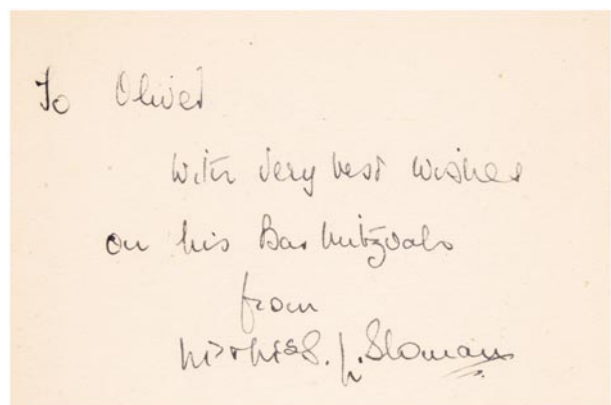 To Oliver
With very best wishes
on his Bar Mitzvah
from
Mr & Mrs S. J. Sloman